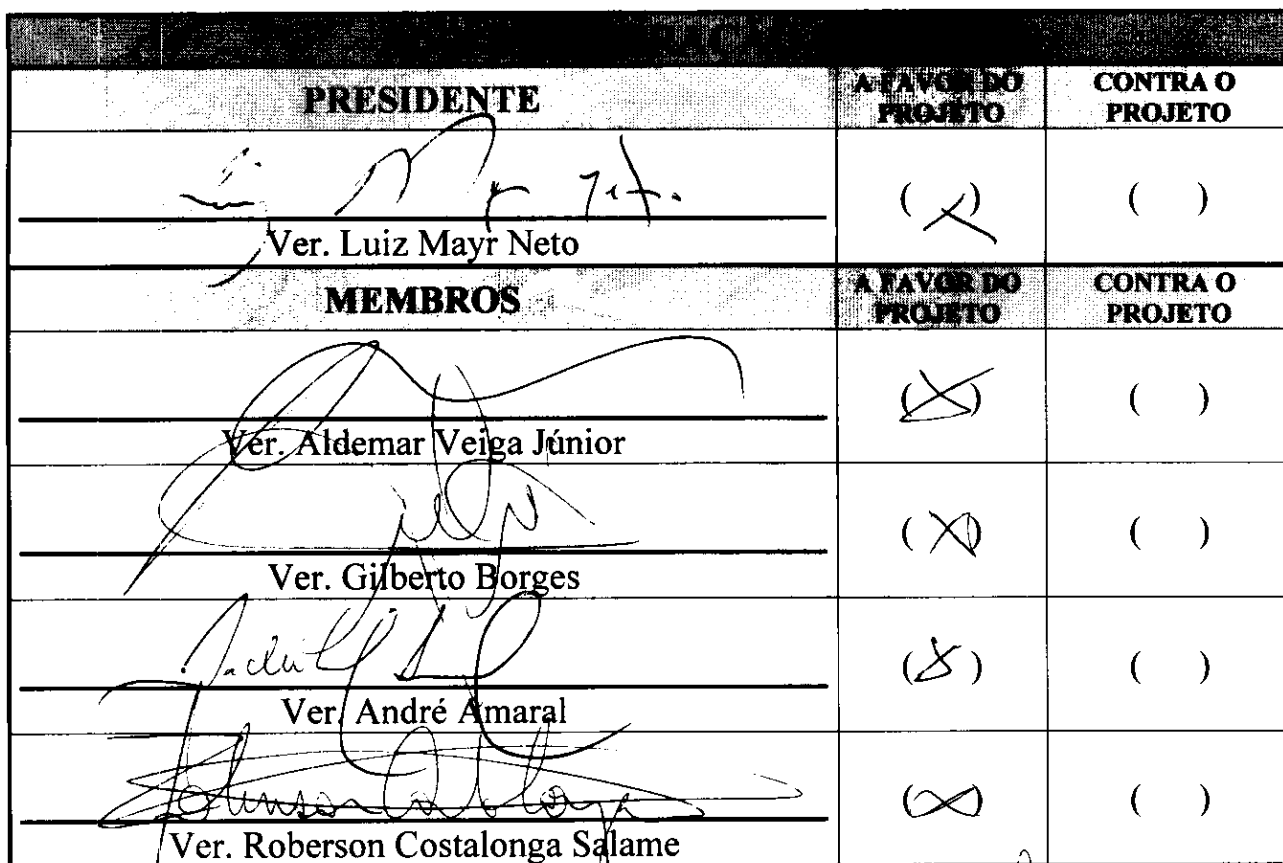 PRESIDENTE
A FAVOR DO PROJETO
CONTRA O PROJETO
( X ) ( )
Ver. Luiz Mayr Neto
MEMBROS
A FAVOR DO PROJETO
CONTRA O PROJETO
( X ) ( )
Ver. Aldemar Veiga Júnior
( X ) ( )
Ver. Gilberto Borges
( X ) ( )
Ver. André Amaral
( X ) ( )
Ver. Roberson Costalonga Salame